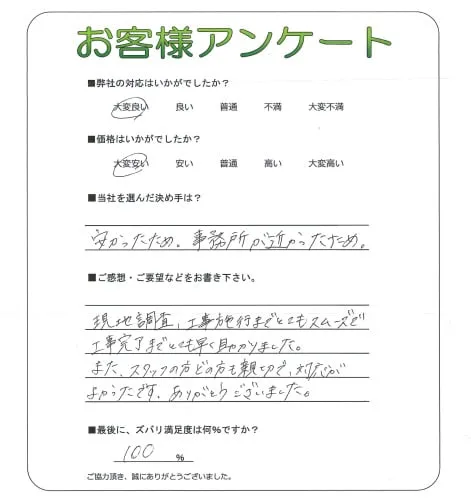 お客様アンケート
■弊社の対応はいかがでしたか？
大変良い 良い 普通 不満 大変不満
■価格はいかがでしたか？
大変安い 安い 普通 高い 大変高い
■当社を選んだ決め手は？
安かったため、事務所が近かったため。
■ご感想・ご要望などをお書き下さい。
現地調査、工事施行までとてもスムーズで
工事完了までとても早く助かりました。
また、スタッフの方どの方も親切で、対応が
よかったです、ありがとうございました。
■最後に、ズバリ満足度は何%ですか？
100 %
ご協力頂き、誠にありがとうございました。